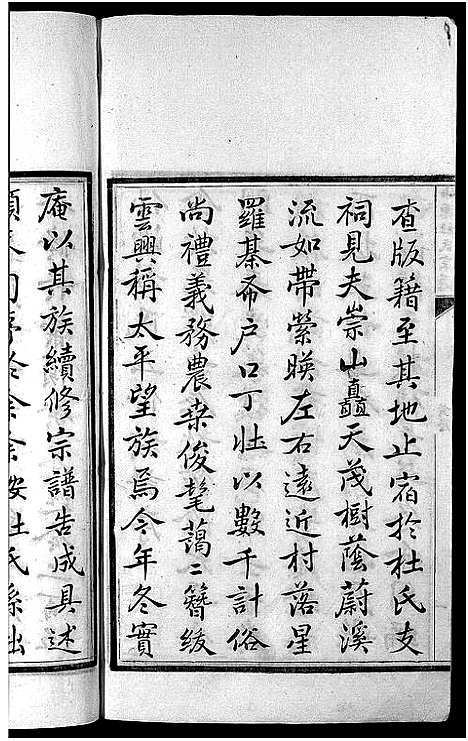 查版籍至其地止宿於杜氏支
祠見夫崇山矗天茂樹蔭蔚溪
流如帶縈暎左右遠近村落星
羅綦布户口丁壯以數千計俗
尚禮義務農桒俊髦藹二簪紱
雲興稱太平望族焉今年冬實
庵以其族續修宗譜告成具述
按杜氏系出